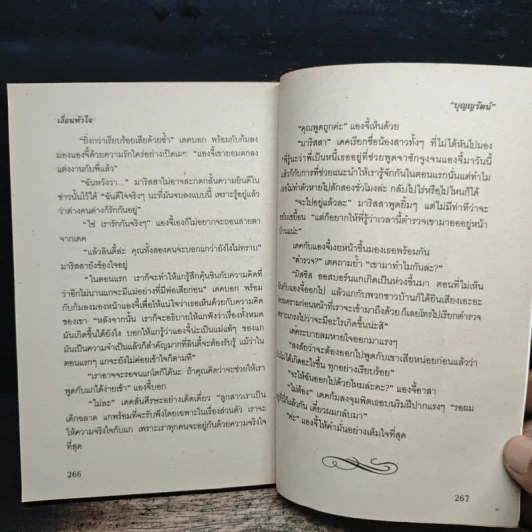 เงื่อนหัวใจ
"ยิ่งกว่าเรียบร้อยเสียด้วยซ้ำ" เดคบอก พร้อมกับก้มลง
มองแองจี้ด้วยความรักใคร่อย่างเปิดเผย "แองจี้เขายอมตกลง
แต่งงานกับพี่แล้ว"
"ฉันหวังว่า..." มาริสสาไม่อาจสะกดกลั้นความยินดีใน
ข่าวนั้นไว้ได้ "ฉันดีใจจริงๆ นะที่มันจบลงแบบนี้ เพราะรู้อยู่แล้ว
ว่าต่างคนต่างก็รักกันอยู่"
"ใช่ เรารักกันจริงๆ" แองจี้เองก็ไม่อยากจะถอนสายตา
จากเดค
"แล้วลินดี้ล่ะ คุณทั้งสองคนจะบอกแกว่ายังไงไม่ทราบ"
มาริสสายังข้องใจอยู่
"ในตอนแรก เราก็จะทำให้แกรู้สึกคุ้นชินกับความคิดที่
ว่าอีกไม่นานแกจะมีแม่อย่างที่มีพ่อเสียก่อน" เดคบอก พร้อม
กับก้มลงมองหน้าแองจี้เพื่อให้แน่ใจว่าเธอเห็นด้วยกับความคิด
ของเขา "หลังจากนั้น เราก็จะอธิบายให้แกฟังว่าเรื่องทั้งหมด
มันเกิดขึ้นได้ยังไง บอกให้แกรู้ว่าแองจี้น่ะเป็นแม่แท้ๆ ของแก
มันเป็นความจำเป็นแล้วก็สำคัญมากที่ลินดี้จะต้องรับรู้ แม้ว่าใน
ตอนแรกๆ แกจะยังไม่ค่อยเข้าใจก็ตามที"
"เราอาจจะรอจนแกโตก็ได้นะ ถ้าคุณคิดว่าจะช่วยให้เรา
พูดกับแกได้ง่ายเข้า" แองจี้บอก
"ไม่ละ" เดคสั่นศีรษะอย่างเด็ดเดี่ยว "ลูกสาวเราเป็น
เด็กฉลาด แกพร้อมที่จะรับฟังโดยเฉพาะในเรื่องส่วนตัว เราจะ
ให้ความจริงใจกับแก เพราะเราทุกคนจะอยู่กันด้วยความจริงใจ
ที่สุด
266
"บุญญรัตน์"
"คุณพูดถูกค่ะ" แองจี้เห็นด้วย
"มาริสสา" เดคเรียกชื่อน้องสาวทั้งๆ ที่ไม่ได้หันไปมอง
รู้นะว่าพี่เป็นหนี้เธออยู่ที่ช่วยพูดจาชักจูงจนแองจี้มาวันนี้
แล้วก็กับการที่ช่วยแนะนำให้เรารู้จักกันในตอนแรกนั่นแต่ทำไม
ไม่ทำตัวหายไปสักสองชั่วโมงล่ะ กลับไปไร่หรือไปไหนก็ได้
"จะไปอยู่แล้วละ" มาริสสาพูดยิ้มๆ แต่ไม่มีท่าทีว่าจะ
ขยับเขยื้อน "แต่ก็อยากให้พี่รู้ว่าเวลานี้ตำรวจเขามาออกอยู่หน้า
บ้านแน่ะ"
เดคกับแองจี้เงยหน้าขึ้นมองเธอพร้อมกัน
"ตำรวจ?" เดคถามย้ำ "เขามาทำไมกันล่ะ?"
"มิสซิส ออสบอร์นแกเกิดเป็นห่วงขึ้นมา ตอนที่ไม่เห็น
กับแองจี้ออกไป แล้วแกกับพวกชาวบ้านก็ได้ยินเสียงเอะอะ
ครามก่อนหน้าที่เราจะเข้ามาถึงด้วย ก็เลยโทรไปเรียกตำรวจ
เกรงไปว่าจะมีอะไรเกิดขึ้นน่ะสิ"
เดคระบายลมหายใจออกมาแรงๆ
"สงสัยว่าจะต้องออกไปพูดกับเขาเสียหน่อยก่อนแล้วว่า
ไม่ได้เกิดอะไรขึ้น ทุกอย่างเรียบร้อย"
"จะให้ฉันออกไปด้วยไหมล่ะคะ?" แองจี้อาสา
"ไม่ต้อง" เดคก้มลงจุมพิตเธอบนริมฝีปากแรงๆ "รอผม
อยู่ที่นี่แล้วกัน เดี๋ยวผมกลับมา"
"ค่ะ" แองจี้ให้คำมั่นอย่างเต็มใจที่สุด
267